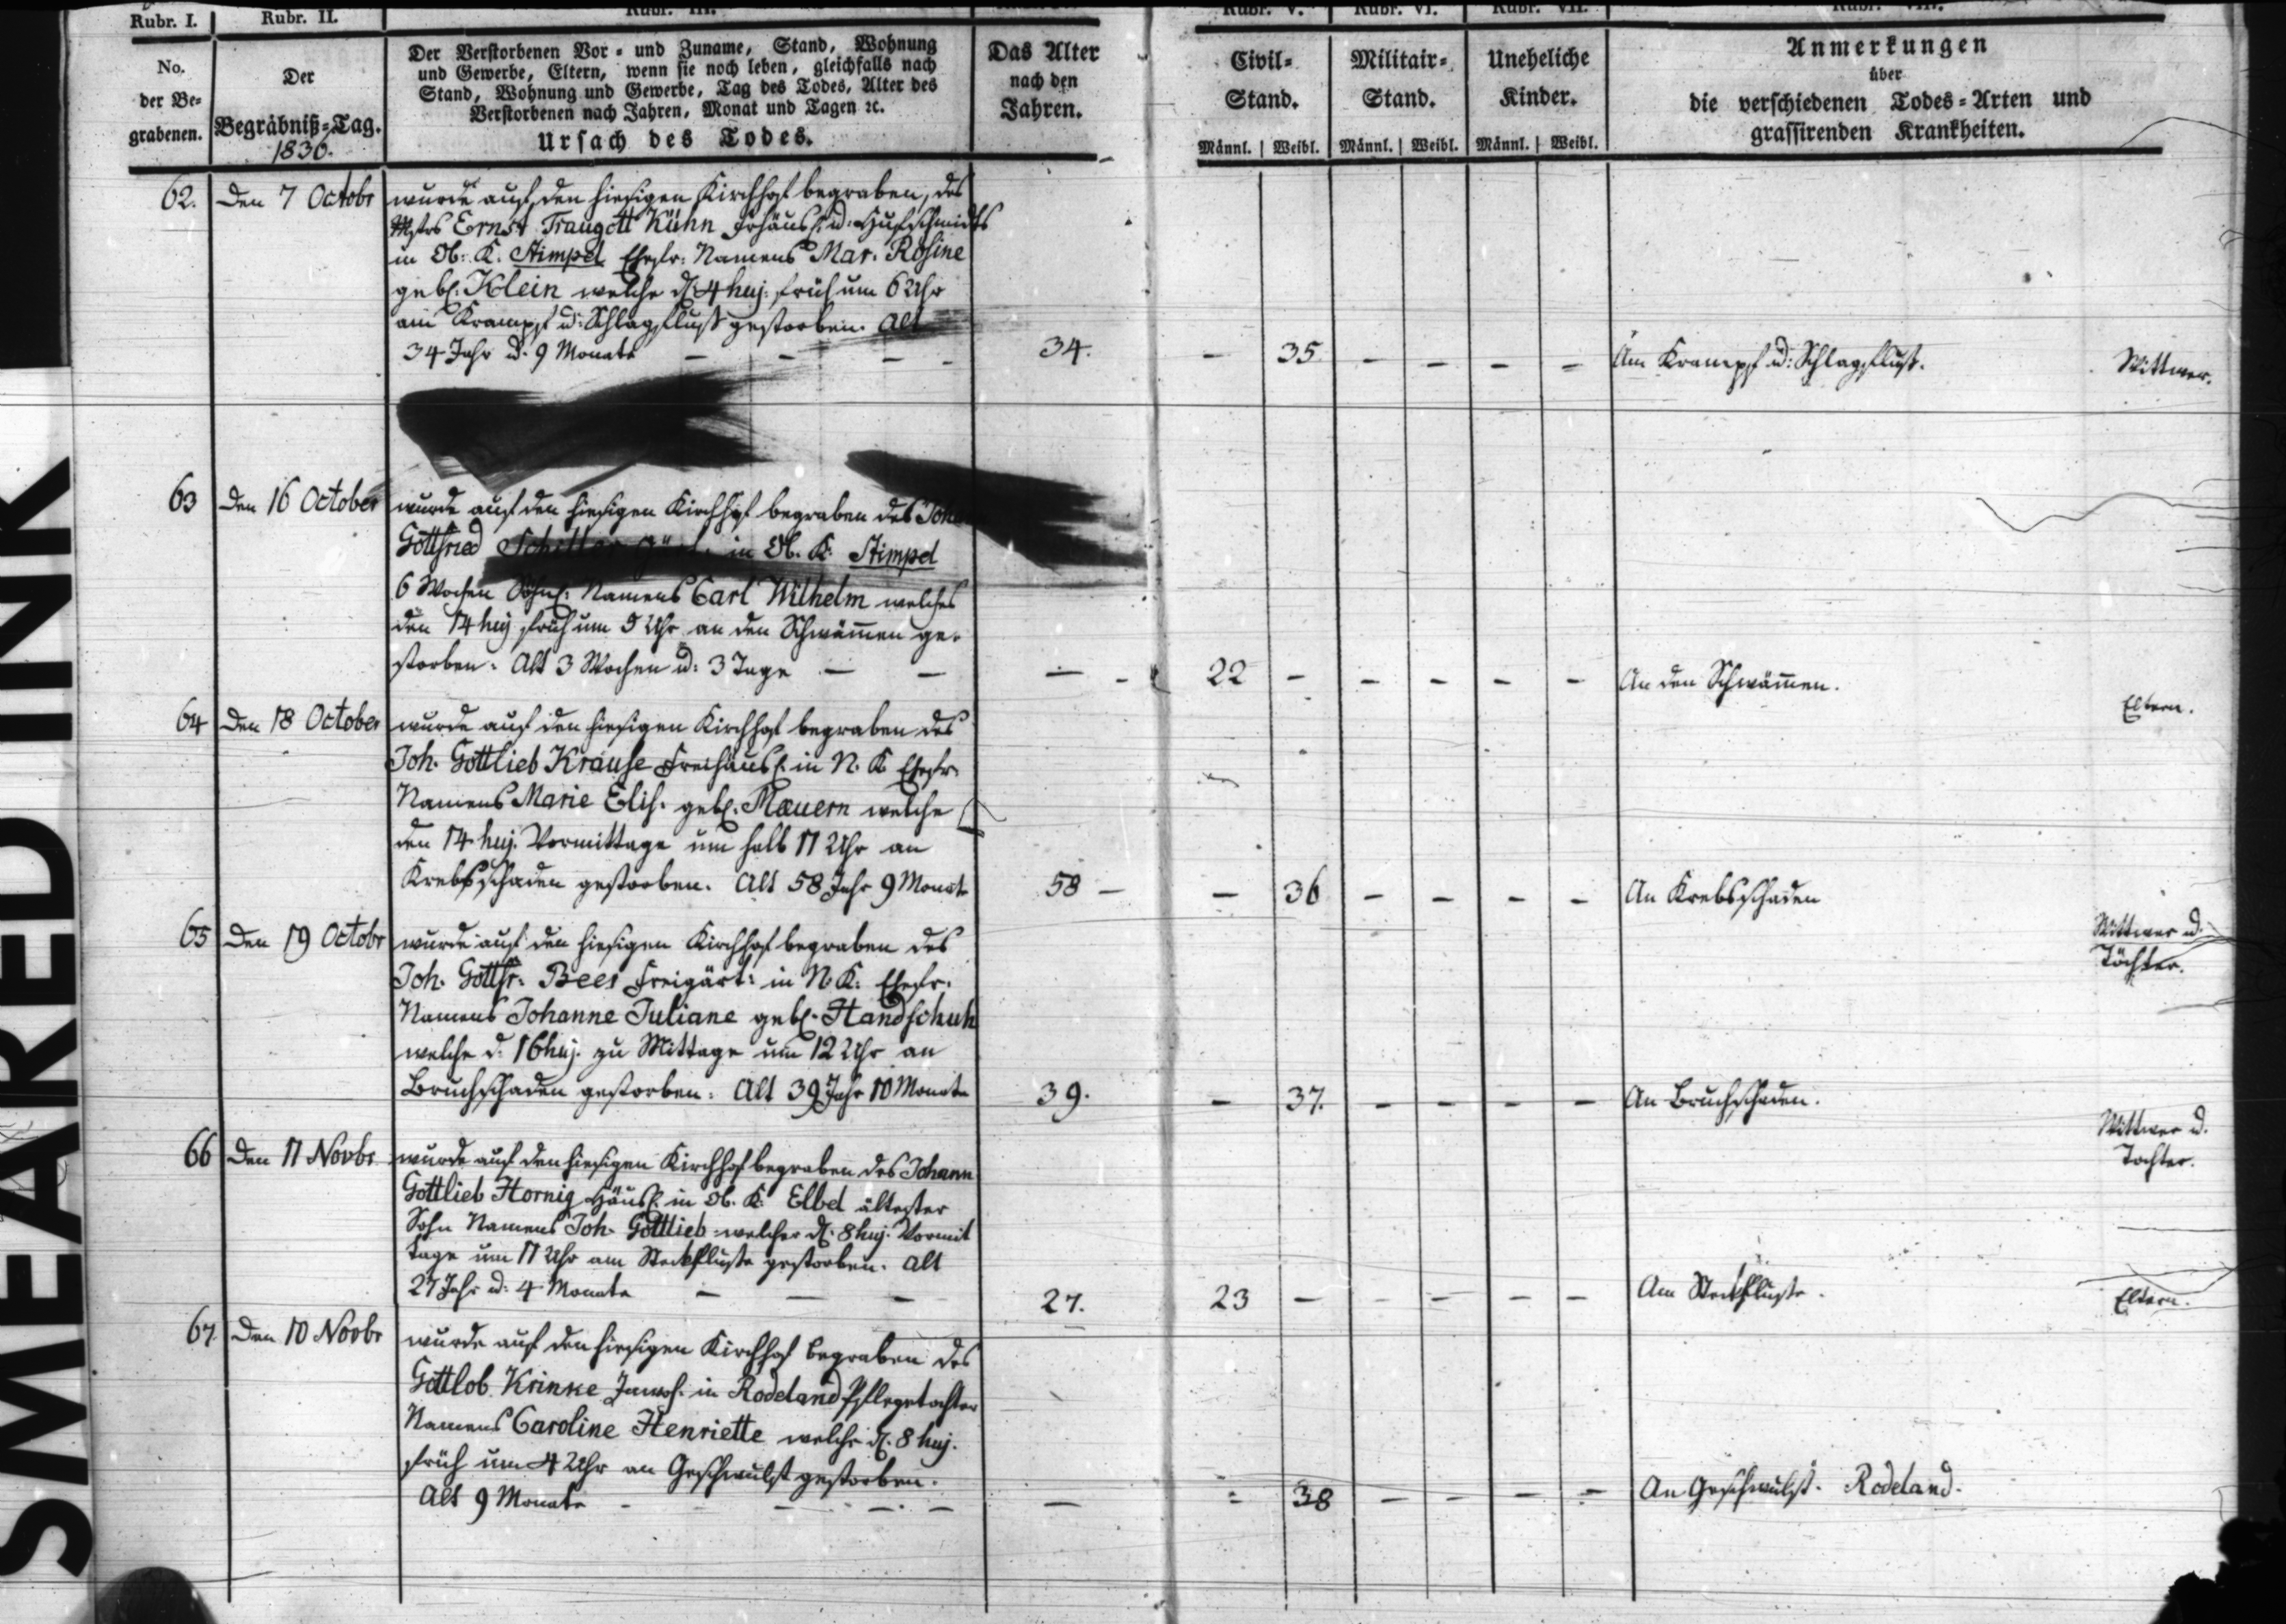 SMEARED INK
Rubr. I.
Rubr. II.
Rubr. III.
Rubr. V.
Rubr. VI.
Rubr. VII.
Rubr. VIII.
No. der Be-
grabenen.
Der
Begräbniß-Tag.
1830.
Der Verstorbenen Vor- und Zuname, Stand, Wohnung
und Gewerbe, Eltern, wenn sie noch leben, gleichfalls nach
Stand, Wohnung und Gewerbe, Tag des Todes, Alter des
Verstorbenen nach Jahren, Monat und Tagen ꝛc.
Ursach des Todes.
Das Alter
nach den
Jahren.
Civil-
Stand.
Männl. Weibl.
Militair-
Stand.
Männl. Weibl.
Uneheliche
Kinder.
Männl. Weibl.
Anmerkungen
über
die verschiedenen Todes-Arten und
grassirenden Krankheiten.
62. Den 7 Octobr wurde auf den hiesigen Kirchhof begraben, des
Mstrs Ernst Traugott Kühn Frhäusl. u. Hufschmidts
in Ob: K. Stimpel Ehefr: Namens Mar. Rosine
geb. Klein welche d. 4 huj. früh um 6 Uhr
am Krampf u: Schlagfluß gestorben. Alt
34 Jahr u. 9 Monate — — — — 34. — 35 — — — — Am Krampf u: Schlagfluß. Wittwer.
63 Den 16 October wurde auf den hiesigen Kirchhof begraben des
Gottfried in Ob. K. Stimpel
6 Wochen Söhnl. Namens Carl Wilhelm welches
den 14 huj früh um 5 Uhr an den Schwämmen ge-
storben. Alt 3 Wochen u: 3 Tage — — — 22 — — — — — An den Schwämmen. Eltern.
64 Den 18 October wurde auf den hiesigen Kirchhof begraben des
Joh. Gottlieb Krause Freihäusl. in N. K Ehefr.
Namens Marie Elis. geb. Mauern welche
den 14 huj. Vormittage um halb 11 Uhr an
Krebsschaden gestorben. Alt 58 Jahr 9 Monate 58 — — 36 — — — — An Krebsschaden Wittwer u.
Töchter.
65 Den 19 Octobr wurde auf den hiesigen Kirchhof begraben des
Joh. Gottfr. Beer Freigärt: in N. K: Ehefr.
Namens Johanne Juliane geb. Handschuh
welche d. 16 huj. zu Mittage um 12 Uhr an
Bruchschaden gestorben. Alt 39 Jahr 10 Monate 39. — 37. — — — — An Bruchschaden. Wittwer u.
Tochter.
66 Den 11 Novbr wurde auf den hiesigen Kirchhof begraben des Johann
Gottlieb Hornig Häusl. in Ob. K. Elbel ältester
Sohn Namens Joh. Gottlieb welcher d. 8 huj. Vormit
tage um 11 Uhr am Steckflusse gestorben. Alt
27 Jahr u: 4 Monate — — — 27. 23 — — — — — Am Steckflusse. Eltern.
67. Den 10 Novbr wurde auf den hiesigen Kirchhof begraben des
Gottlob Krinke Inwoh. in Rodeland Pflegetochter
Namens Caroline Henriette welche d. 8 huj.
früh um 4 Uhr an Geschwulst gestorben.
Alt 9 Monate — — — — — 38 — — — — An Geschwulst. Rodeland.